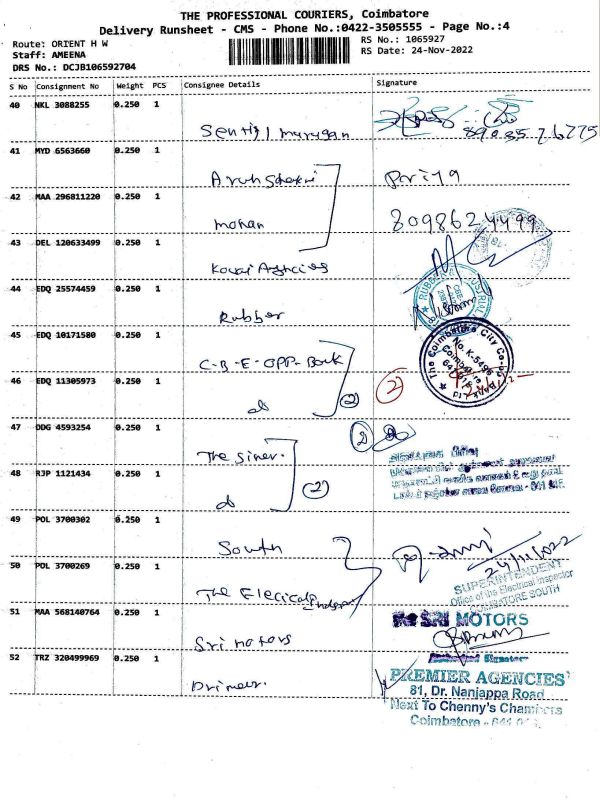 THE PROFESSIONAL COURIERS, Coimbatore
Delivery Runsheet - CMS - Phone No.:0422-3505555 - Page No.:4
Route: ORIENT H W
RS No.: 1065927
Staff: AMEENA
RS Date: 24-Nov-2022
DRS No.: DCJB106592704
S No Consignment No Weight PCS Consignee Details Signature
40 NKL 3088255 0.250 1
Senthil murugan
89035 76775
41 MYD 6563660 0.250 1
Priya
42 MAA 296811220 0.250 1
mohan 8098624499
43 DEL 120633499 0.250 1
Kovai Agencies
44 EDQ 25574459 0.250 1
Rubber
45 EDQ 10171580 0.250 1
C-B-E-OPP-Bank
The Coimbatore City Co-op Bank Ltd
No. K-5495
Coimbatore
641 018
46 EDQ 11305973 0.250 1
do (2) (2)
47 DDG 4593254 0.250 1
The Siner.
48 RJP 1121434 0.250 1
do (2)
49 POL 3700302 0.250 1
South
24/11/2022
50 POL 3700269 0.250 1
The Elecical
SUPERINTENDENT
Office of the Electrical Inspector
COIMBATORE SOUTH
51 MAA 568140764 0.250 1
SRI MOTORS
Sri motors
Authorised Signatory
52 TRZ 320499969 0.250 1
PREMIER AGENCIES
81, Dr. Nanjappa Road
Next To Chenny's Chambers
Coimbatore - 641 018